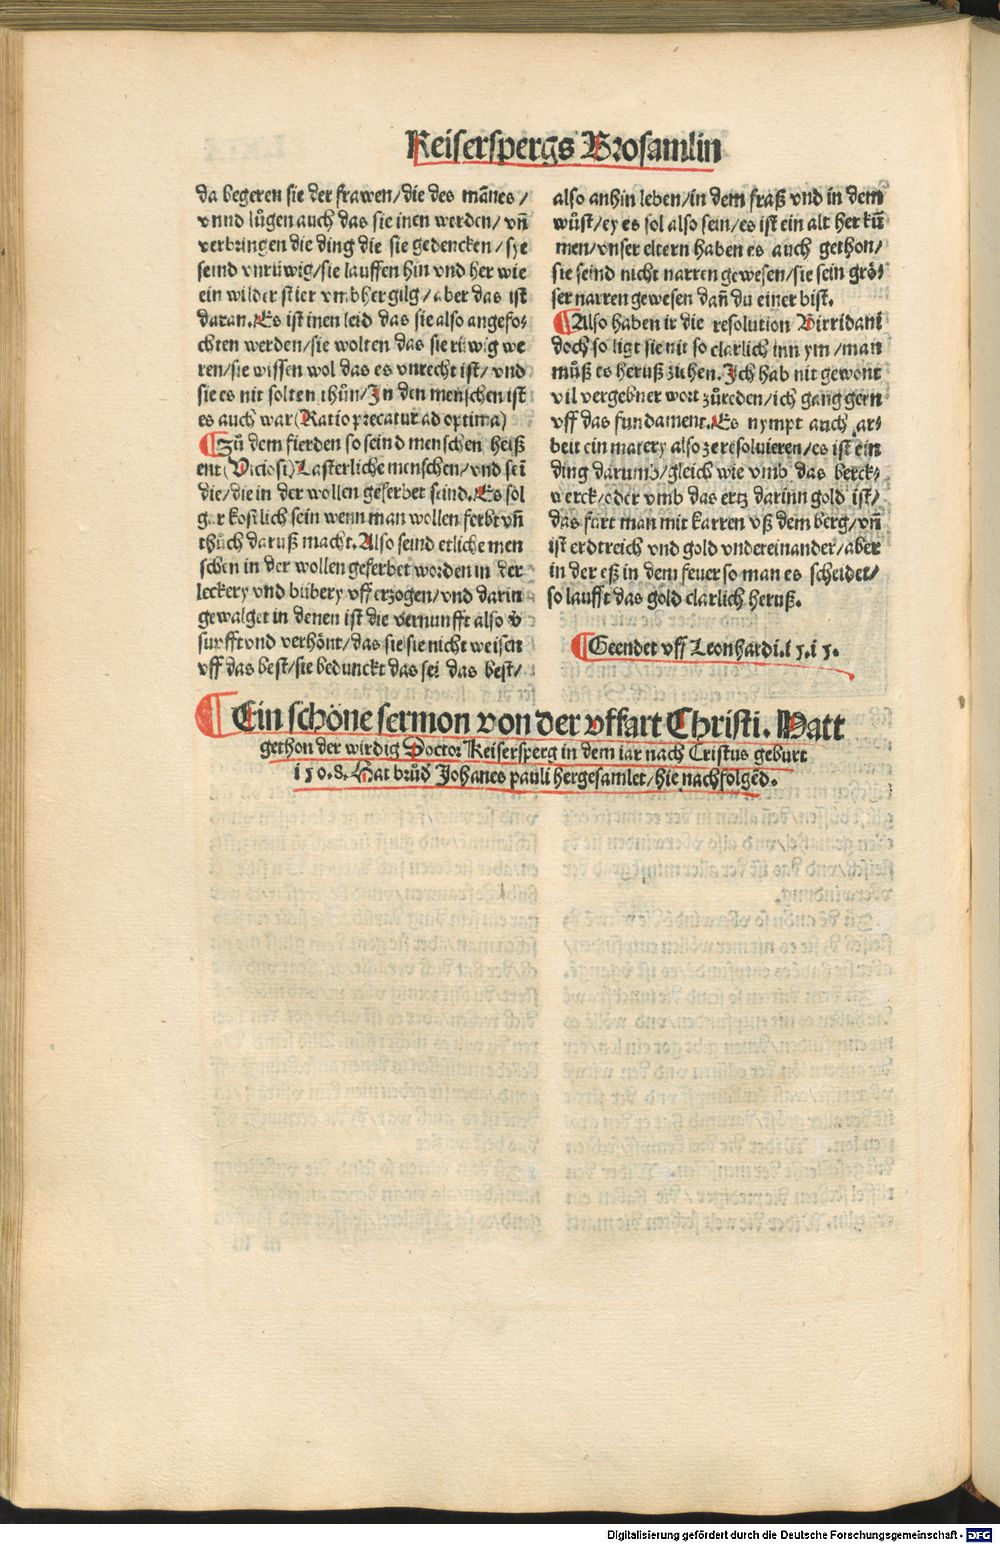 Keiserspergs Brosamlin
da begeren sie der frawen/die des mānes/
vnnd lůgen auch das sie inen werden/vn̄
verbringen die ding die sie gedencken/sye
seind vnrüwig/sie lauffen hin vnd her wie
ein wilder stier vmbhergilg/aber das ist
daran. Es ist inen leid das sie also angefo⸗
chten werden/sie wolten das sie rüwig we
ren/sie wissen wol das es vnrecht ist/vnd
sie es nit solten thůn/In den menschen ist
es auch war (Ratio precatur ad optima)
¶Zů dem fierden so seind menschen heiß
ent (Viciosi) Lasterliche menschen/vnd sei
die/die in der wollen geferbet seind. Es sol
gar kostlich sein wenn man wollen ferbt vn̄
thůch daruß macht. Also seind etliche men
schen in der wollen geferbet worden in der
leckery vnd bübery vfferzogen/vnd darin
gewalget in denen ist die vernunfft also v̄
surfft vnd verhönt/das sie sie nicht weisen
vff das best/sie bedunckt das sei das best/
also anhin leben/in dem fraß vnd in dem
wůst/ey es sol also sein/es ist ein alt herkū
men/vnser eltern haben es auch gethon/
sie seind nicht narren gewesen/sie sein grös⸗
ser narren gewesen dan̄ du einer bist.
¶Also haben ir die resolution Birridani
doch so ligt sie nit so clarlich inn ym/man
můß es heruß ziehen. Ich hab nit gewont
vil vergebner wort zůreden/ich gang gern
vff das fundament. Es nympt auch ar⸗
beit ein matery also ze resoluieren/es ist ein
ding darumb/gleich wie vmb das berck⸗
werck/oder vmb das ertz darinn gold ist/
das fart man mit karren vß dem berg/vn̄
ist erdtreich vnd gold vndereinander/aber
in der eß in dem feuer so man es scheidet/
so laufft das gold clarlich heruß.
¶Geendet vff Leonhardi. i 5. i 5.
¶Ein schöne sermon von der vffart Christi. Hatt
gethon der wirdig Doctor Keisersperg in dem iar nach Cristus geburt
i 5 0. 8. Hat brůd Johanes pauli hergesamlet/hie nachfolgēd.
Digitalisierung gefördert durch die Deutsche Forschungsgemeinschaft - DFG